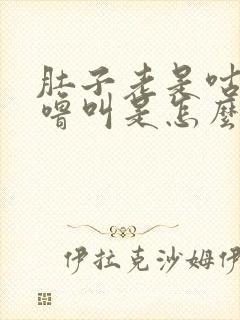 肚子老是咕
噜叫是怎麼
伊拉克沙姆伊